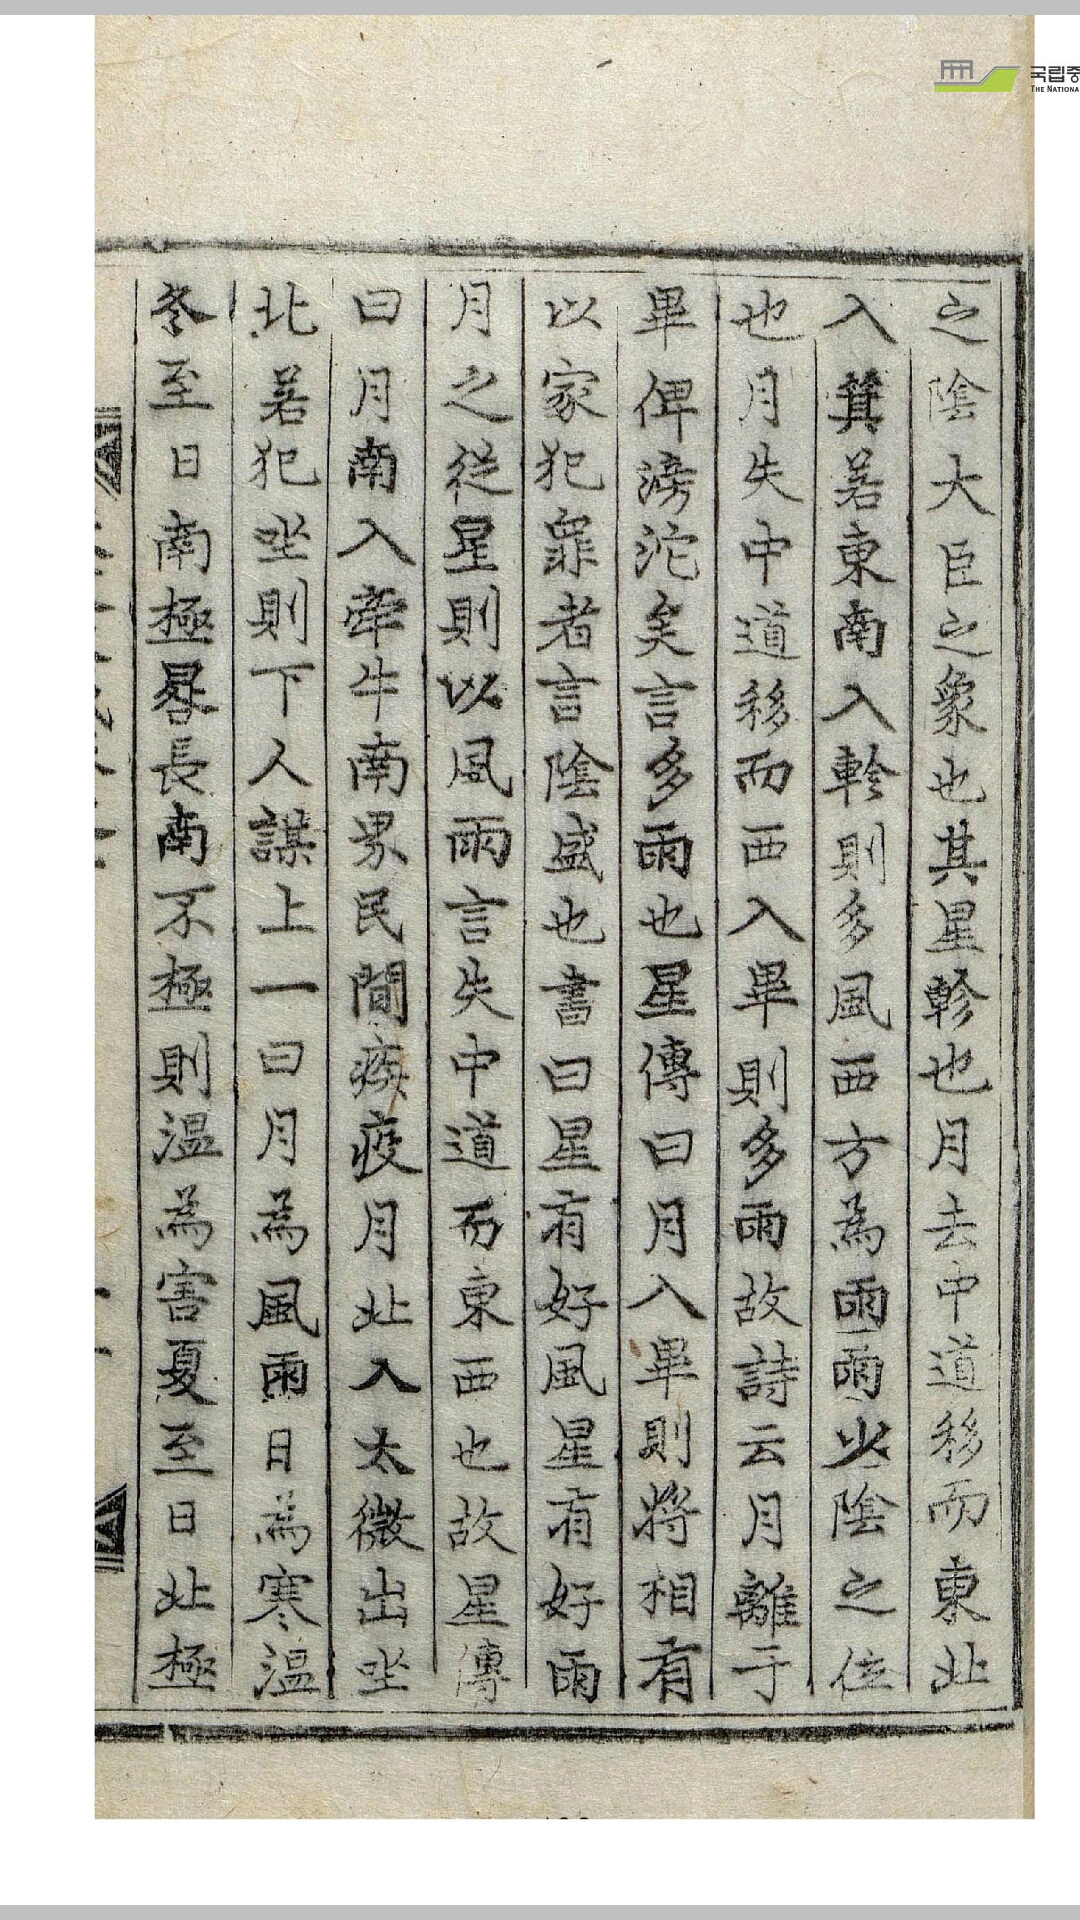 국립중
THE NATIONA
之陰大臣之象也其星軫也月去中道移而東北
入箕若東南入軫則多風西方為雨雨少陰之位
也月失中道移而西入畢則多雨故詩云月離于
畢俾滂沱矣言多雨也星傳曰月入畢則將相有
以家犯罪者言陰盛也書曰星有好風星有好雨
月之從星則以風雨言失中道而東西也故星傳
曰月南入牽牛南界民間疾疫月北入太微出坐
北若犯坐則下人謀上一曰月為風雨日為寒温
冬至日南極晷長南不極則温為害夏至日北極